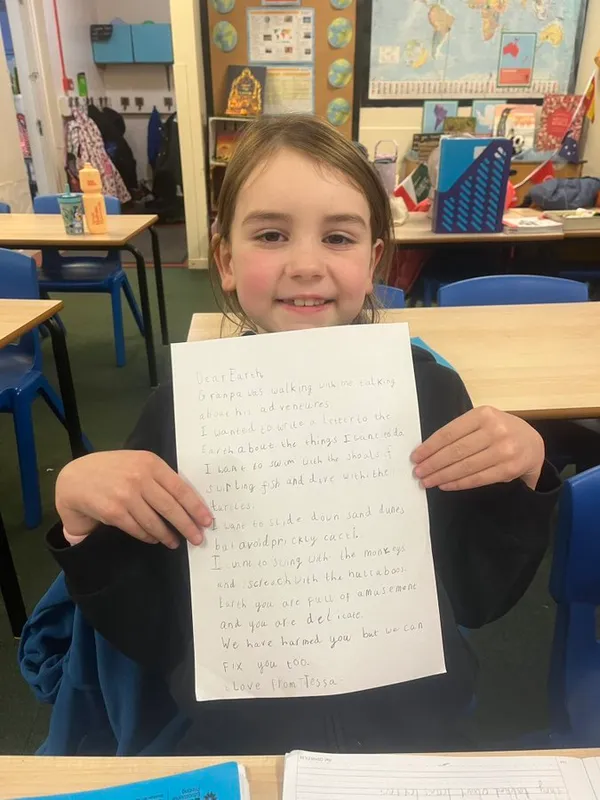 Dear Earth
Granpa was walking with me talking
about his adventures.
I wanted to write a letter to the
Earth about the things I want to do
I want to swim with the shouls of
swirling fish and dive with the
turtles.
I want to slide down sand dunes
but avoid prickly cacti.
I want to swing with the monkeys
and screech with the hullaboos.
Earth you are full of amusement
and you are delicate.
We have harmed you but we can
fix you too.
Love from Tessa